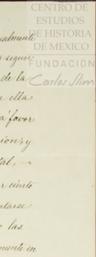 CENTRO DE
ESTUDIOS
DE HISTORIA
DE MEXICO
FUNDACIÓN
Carlos Slim
almente
seguir
de la
ella
a favor
siones y
tal.
por ciento
las
mente en